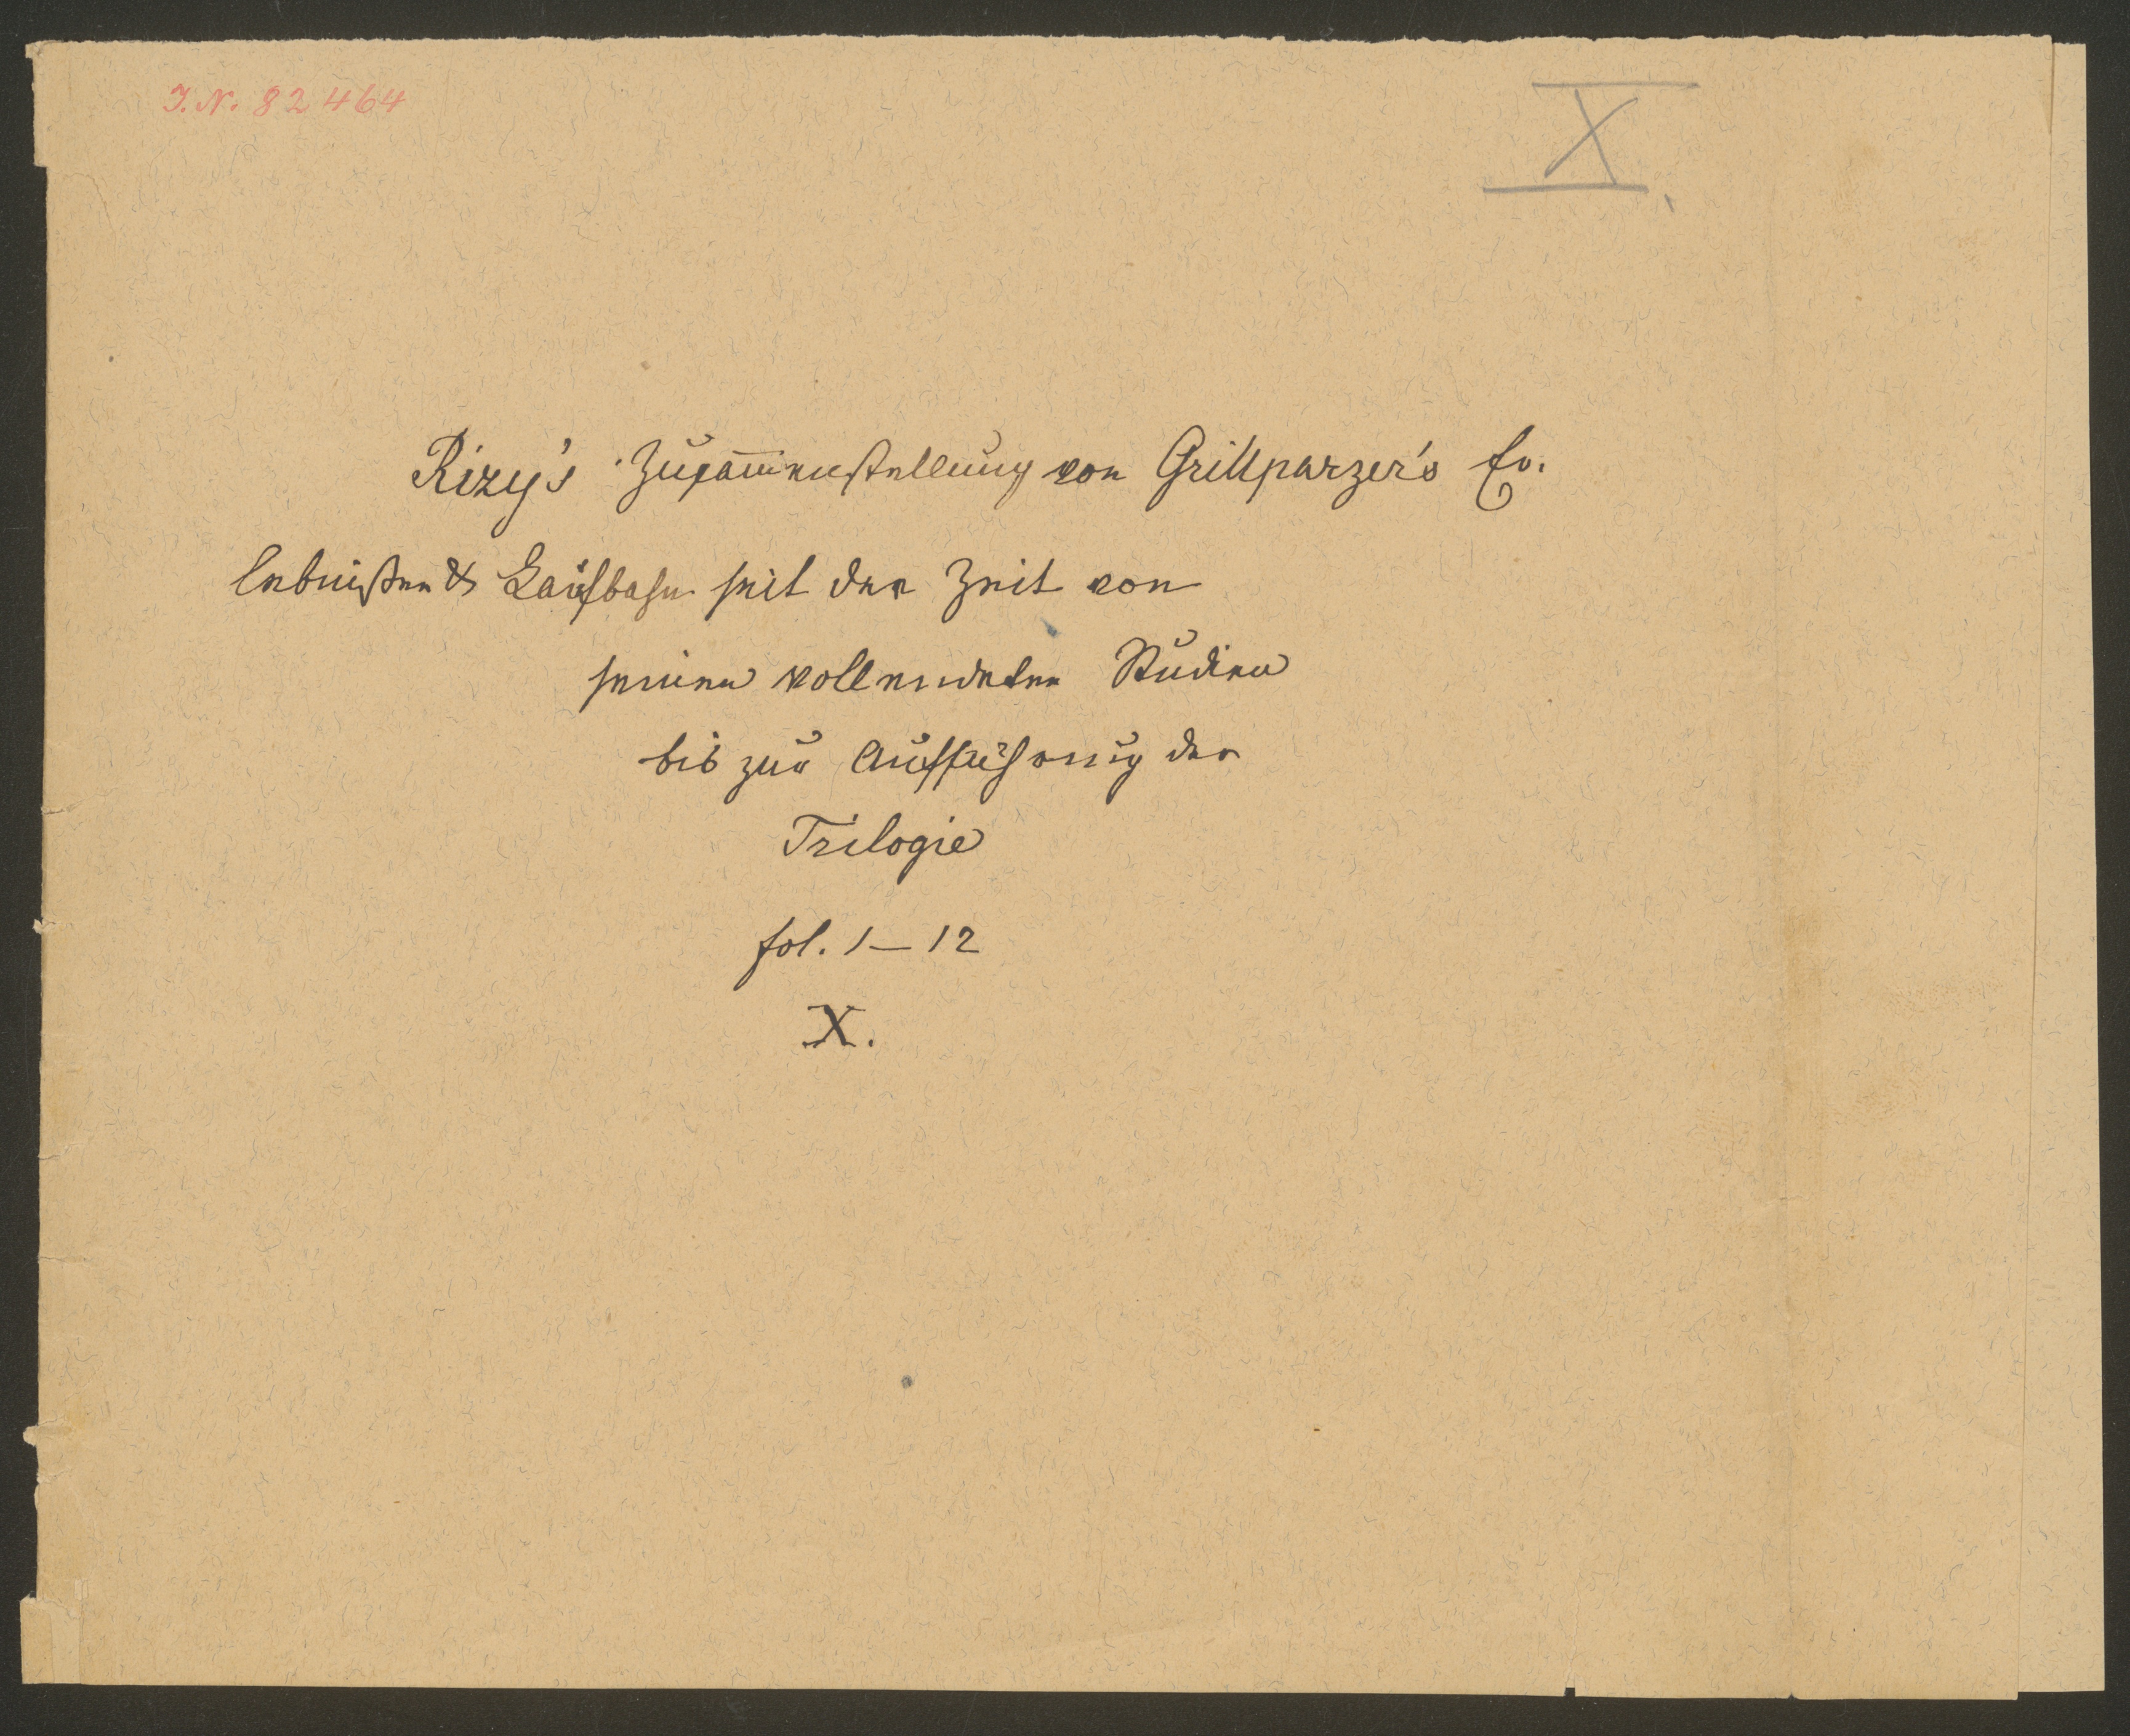 J. N. 82464
X.
Rizy's Zusam̅enstellung von Grillparzer's Er-
lebnißen & Laufbahn seit der Zeit von
seinen vollendeten Studien
bis zur Aufführung der
Trilogie
fol. 1–12
X.